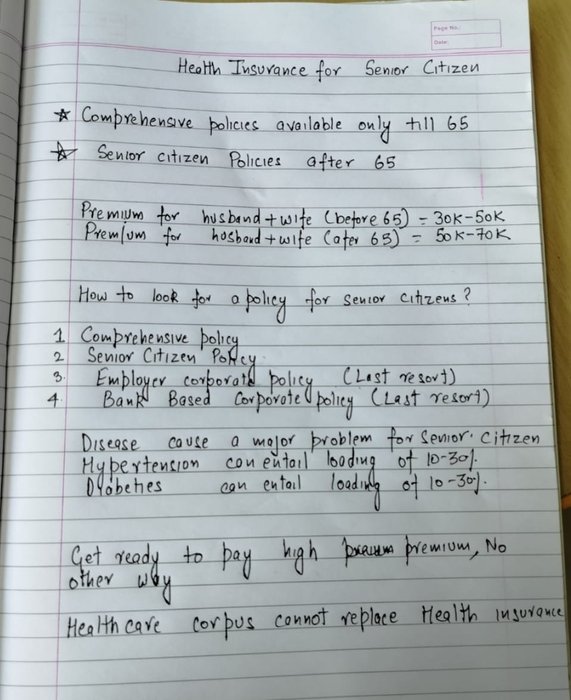 Page No.
Date:
Health Insurance for Senior Citizen
☆ Comprehensive policies available only till 65
☆ Senior citizen Policies after 65
Premium for husband + wife (before 65) = 30K-50K
Premium for husband + wife (after 65) = 50K-70K
How to look for a policy for senior citizens ?
1 Comprehensive policy
2 Senior Citizen Policy
3. Employer corporate policy (Last resort)
4. Bank Based Corporate policy (Last resort)
Disease cause a major problem for Senior Citizen
Hypertension can entail loading of 10-30%.
Diabeties can entail loading of 10-30%.
Get ready to pay high premium, No
other way
Health care corpus cannot replace Health insurance